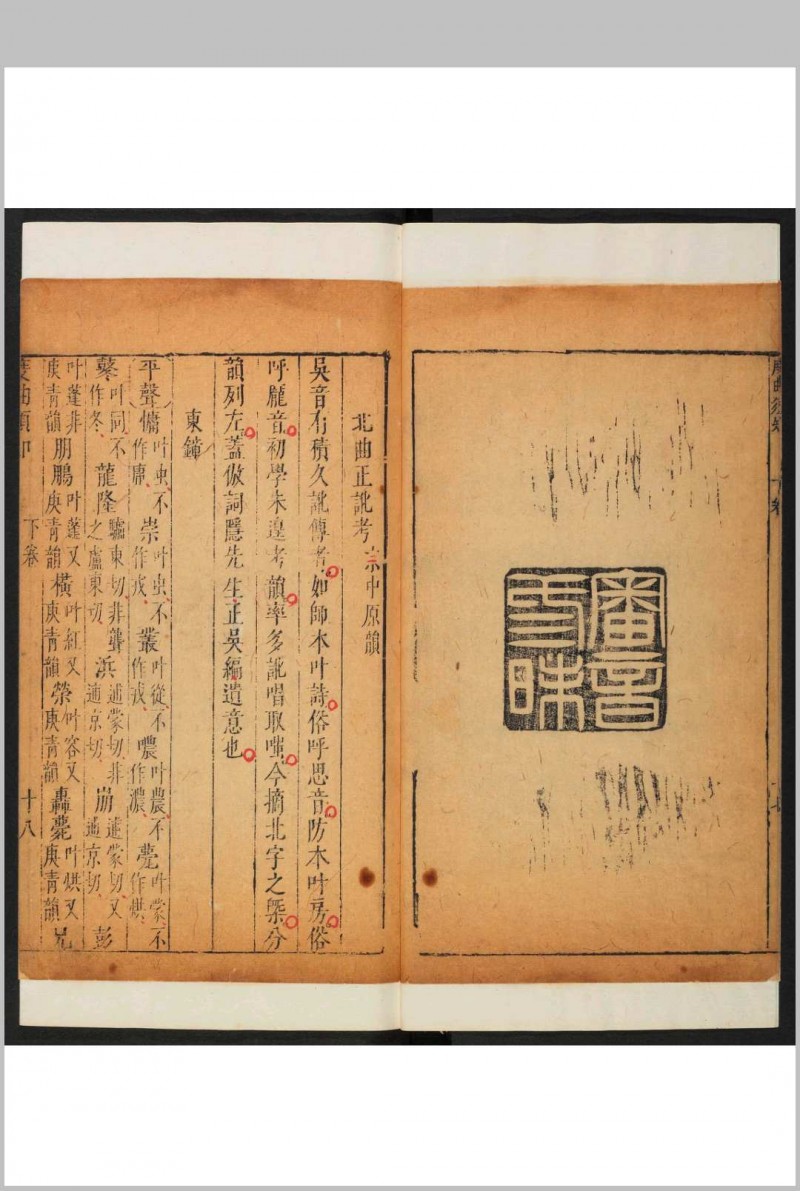 北曲正訛考 宗中原韻
吳音有積久訛傳者如師本叶詩俗呼思音防本叶房俗
呼龐音初學未遑考韻率多訛唱取嗤今摘北字之槩分
韻列左蓋倣詞隱先生正吳編遺意也
東鍾
平聲 慵叶虫不作庸 崇叶虫不作戎 叢叶從不作戎 噥叶農不作濃 甍叶蒙不作烘
叶同不作冬 龍隆驢東切非之盧東切 聾 浜逋蒙切非逋京切 崩逋蒙切又逋京切 彭
叶蓬非庚青韻 朋鵬叶蓬又庚青韻 橫叶紅又庚青韻 榮叶容又庚青韻 轟薨叶烘又庚青韻 兄
度曲須知 下卷 十八